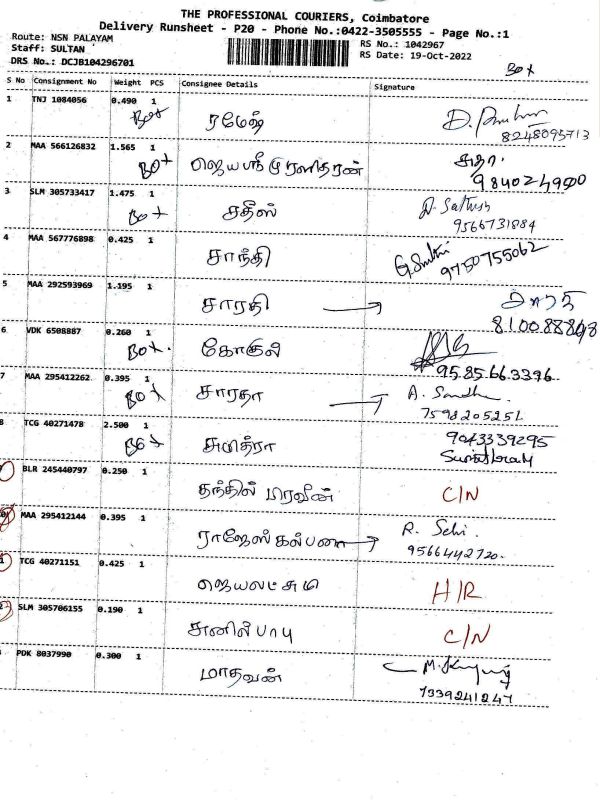 THE PROFESSIONAL COURIERS, Coimbatore
Delivery Runsheet - P20 - Phone No.:0422-3505555 - Page No.:1
Route: NSN PALAYAM
Staff: SULTAN
DRS No.: DCJB104296701
RS No.: 1042967
RS Date: 19-Oct-2022
Box
S No Consignment No Weight PCS Consignee Details Signature
1 TNJ 1084056 0.490 1
Box ரமேஷ்
8248095713
2 MAA 566126832 1.565 1
Box ஜெயஸ்ரீ முரளிதரன்
9840249500
3 SLM 305733417 1.475 1
Box சதீஸ் D. Sathish
9566731884
4 MAA 567776898 0.425 1
சாந்தி
9750755062
5 MAA 292593969 1.195 1
சாரதி
6 VDK 6508887 0.260 1
Box. கோகுல்
9585663396
7 MAA 295412262 0.395 1
Box சாரதா A. Sandhu
7598205251
8 TCG 40271478 2.500 1
Box சுமித்ரா 9043339295
BLR 245440797 0.250 1
C/N
MAA 295412144 0.395 1
ராஜேஸ் கல்பனா R. Selvi.
9566442720.
TCG 40271151 0.425 1
ஜெயலட்சுமி H/R
SLM 305706155 0.190 1
சுனில் பாபு C/N
PDK 8037990 0.300 1
மாதவன்
7339241247